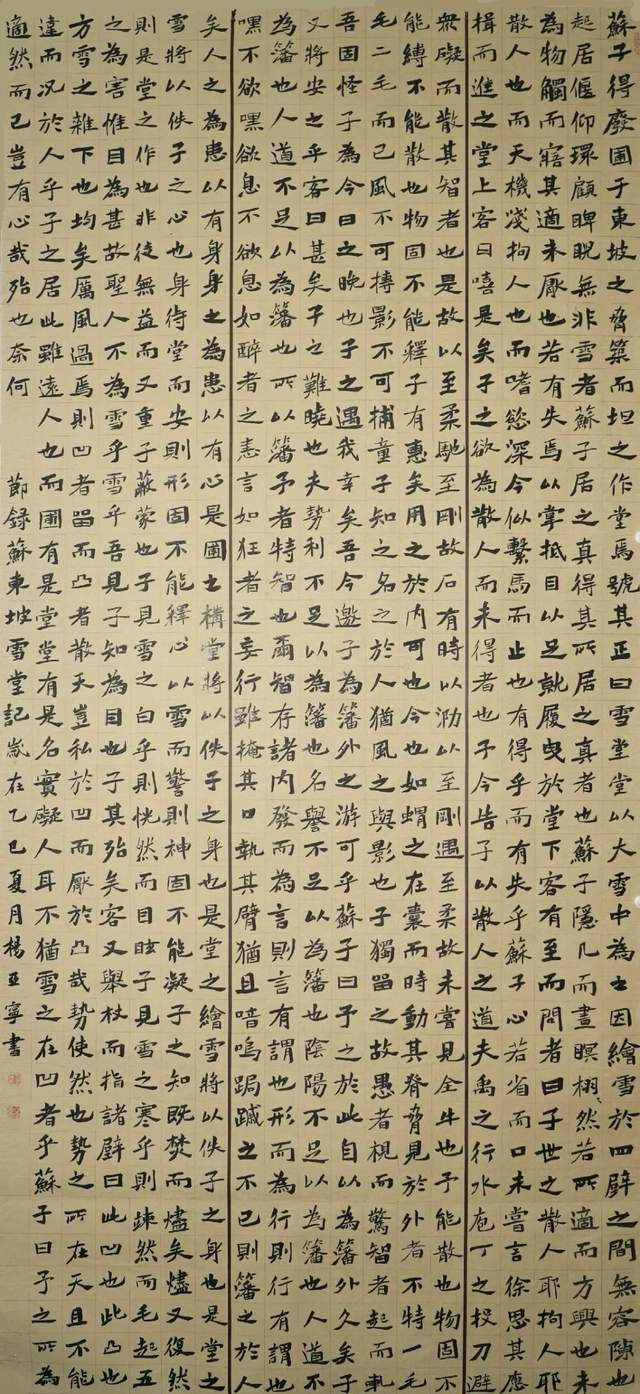 蘇子得廢圃于東坡之脅築而垣之作堂焉號其正曰雪堂堂以大雪中為之因繪雪於四壁之間無容隙也
起居偃仰環顧睥睨無非雪者蘇子居之真得其所居之真者也蘇子隱几而晝瞑栩然若所適而方興也未
為物觸而寤其適未厭也若有失焉以掌抵目以足就履曳於堂下客有至而問者曰子世之散人耶拘人耶
散人也而天機淺拘人也而嗜慾深今似繫馬而止也有得乎而有失乎蘇子心若省而口未嘗言徐思其應
揖而進之堂上客曰嘻是矣子之欲為散人而未得者也予今告子以散人之道夫禹之行水庖丁之投刀避
衆礙而散其智者也是故以至柔馳至剛故石有時以泐以至剛遇至柔故未嘗見全牛也予能散也物固不
能縛不能散也物固不能釋子有惠矣用之於內可也今也如蝟之在囊而時動其脊脅見於外者不特一毛
毛二毛而已風不可摶影不可捕童子知之名之於人猶風之與影也子獨留之故愚者視而驚智者起而軋
吾固怪子為今日之晚也子之遇我幸矣吾今邀子為籓外之游可乎蘇子曰予之於此自以為籓外久矣子
又將安之乎客曰甚矣子之難曉也夫勢利不足以為籓也名譽不足以為籓也陰陽不足以為籓也人道不
為籓也人道不足以為籓也所以籓予者特智也爾智存諸內發而為言則言有謂也形而為行則行有謂也
嘿不欲嘿欲息不欲息如醉者之恚言如狂者之妄行雖掩其口執其臂猶且喑嗚跼蹐之不已則籓之於人
矣人之為患以有身身之為患以有心是圃之構堂將以佚子之身也是堂之繪雪將以佚子之身也是堂之
雪將以佚子之心也身待堂而安則形固不能釋心以雪而警則神固不能凝子之知既焚而燼矣燼又復然
則是堂之作也非徒無益而又重子蔽蒙也子見雪之白乎則恍然而目眩子見雪之寒乎則竦然而毛起五
之為害惟目為甚故聖人不為雪乎雪乎吾見子知為目也子其殆矣客又舉杖而指諸壁曰此凹也此凸也
方雪之雜下也均矣厲風過焉則凹者留而凸者散天豈私於凹而厭於凸哉勢使然也勢之所在天且不能
達而況於人乎子之居此雖遠人也而圃有是堂堂有是名實礙人耳不猶雪之在凹者乎蘇子曰予之所為
適然而已豈有心哉殆也奈何 節錄蘇東坡雪堂記歲在乙巳夏月楊亞寧書